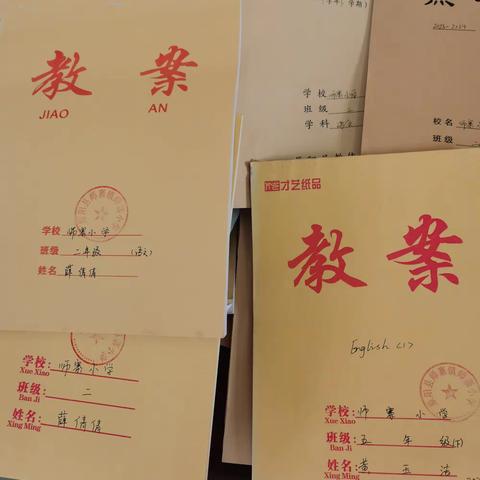 教 案
JIAO AN
学校 师寨小学
班级 二年级 (语文)
姓名 薛倩倩
学校: 师寨小学
Xue Xiao
班级: 二
Ban Ji
姓名: 薛倩倩
Xing Ming
学校 师寨小学
班级 二
学科
2023-2024
校名 师寨小学
班级
才艺纸品
教 案
English (1)
学校: 师寨小学
Xue Xiao
班级: 五年级(下)
Ban Ji
姓名: 黄玉洁
Xing Ming